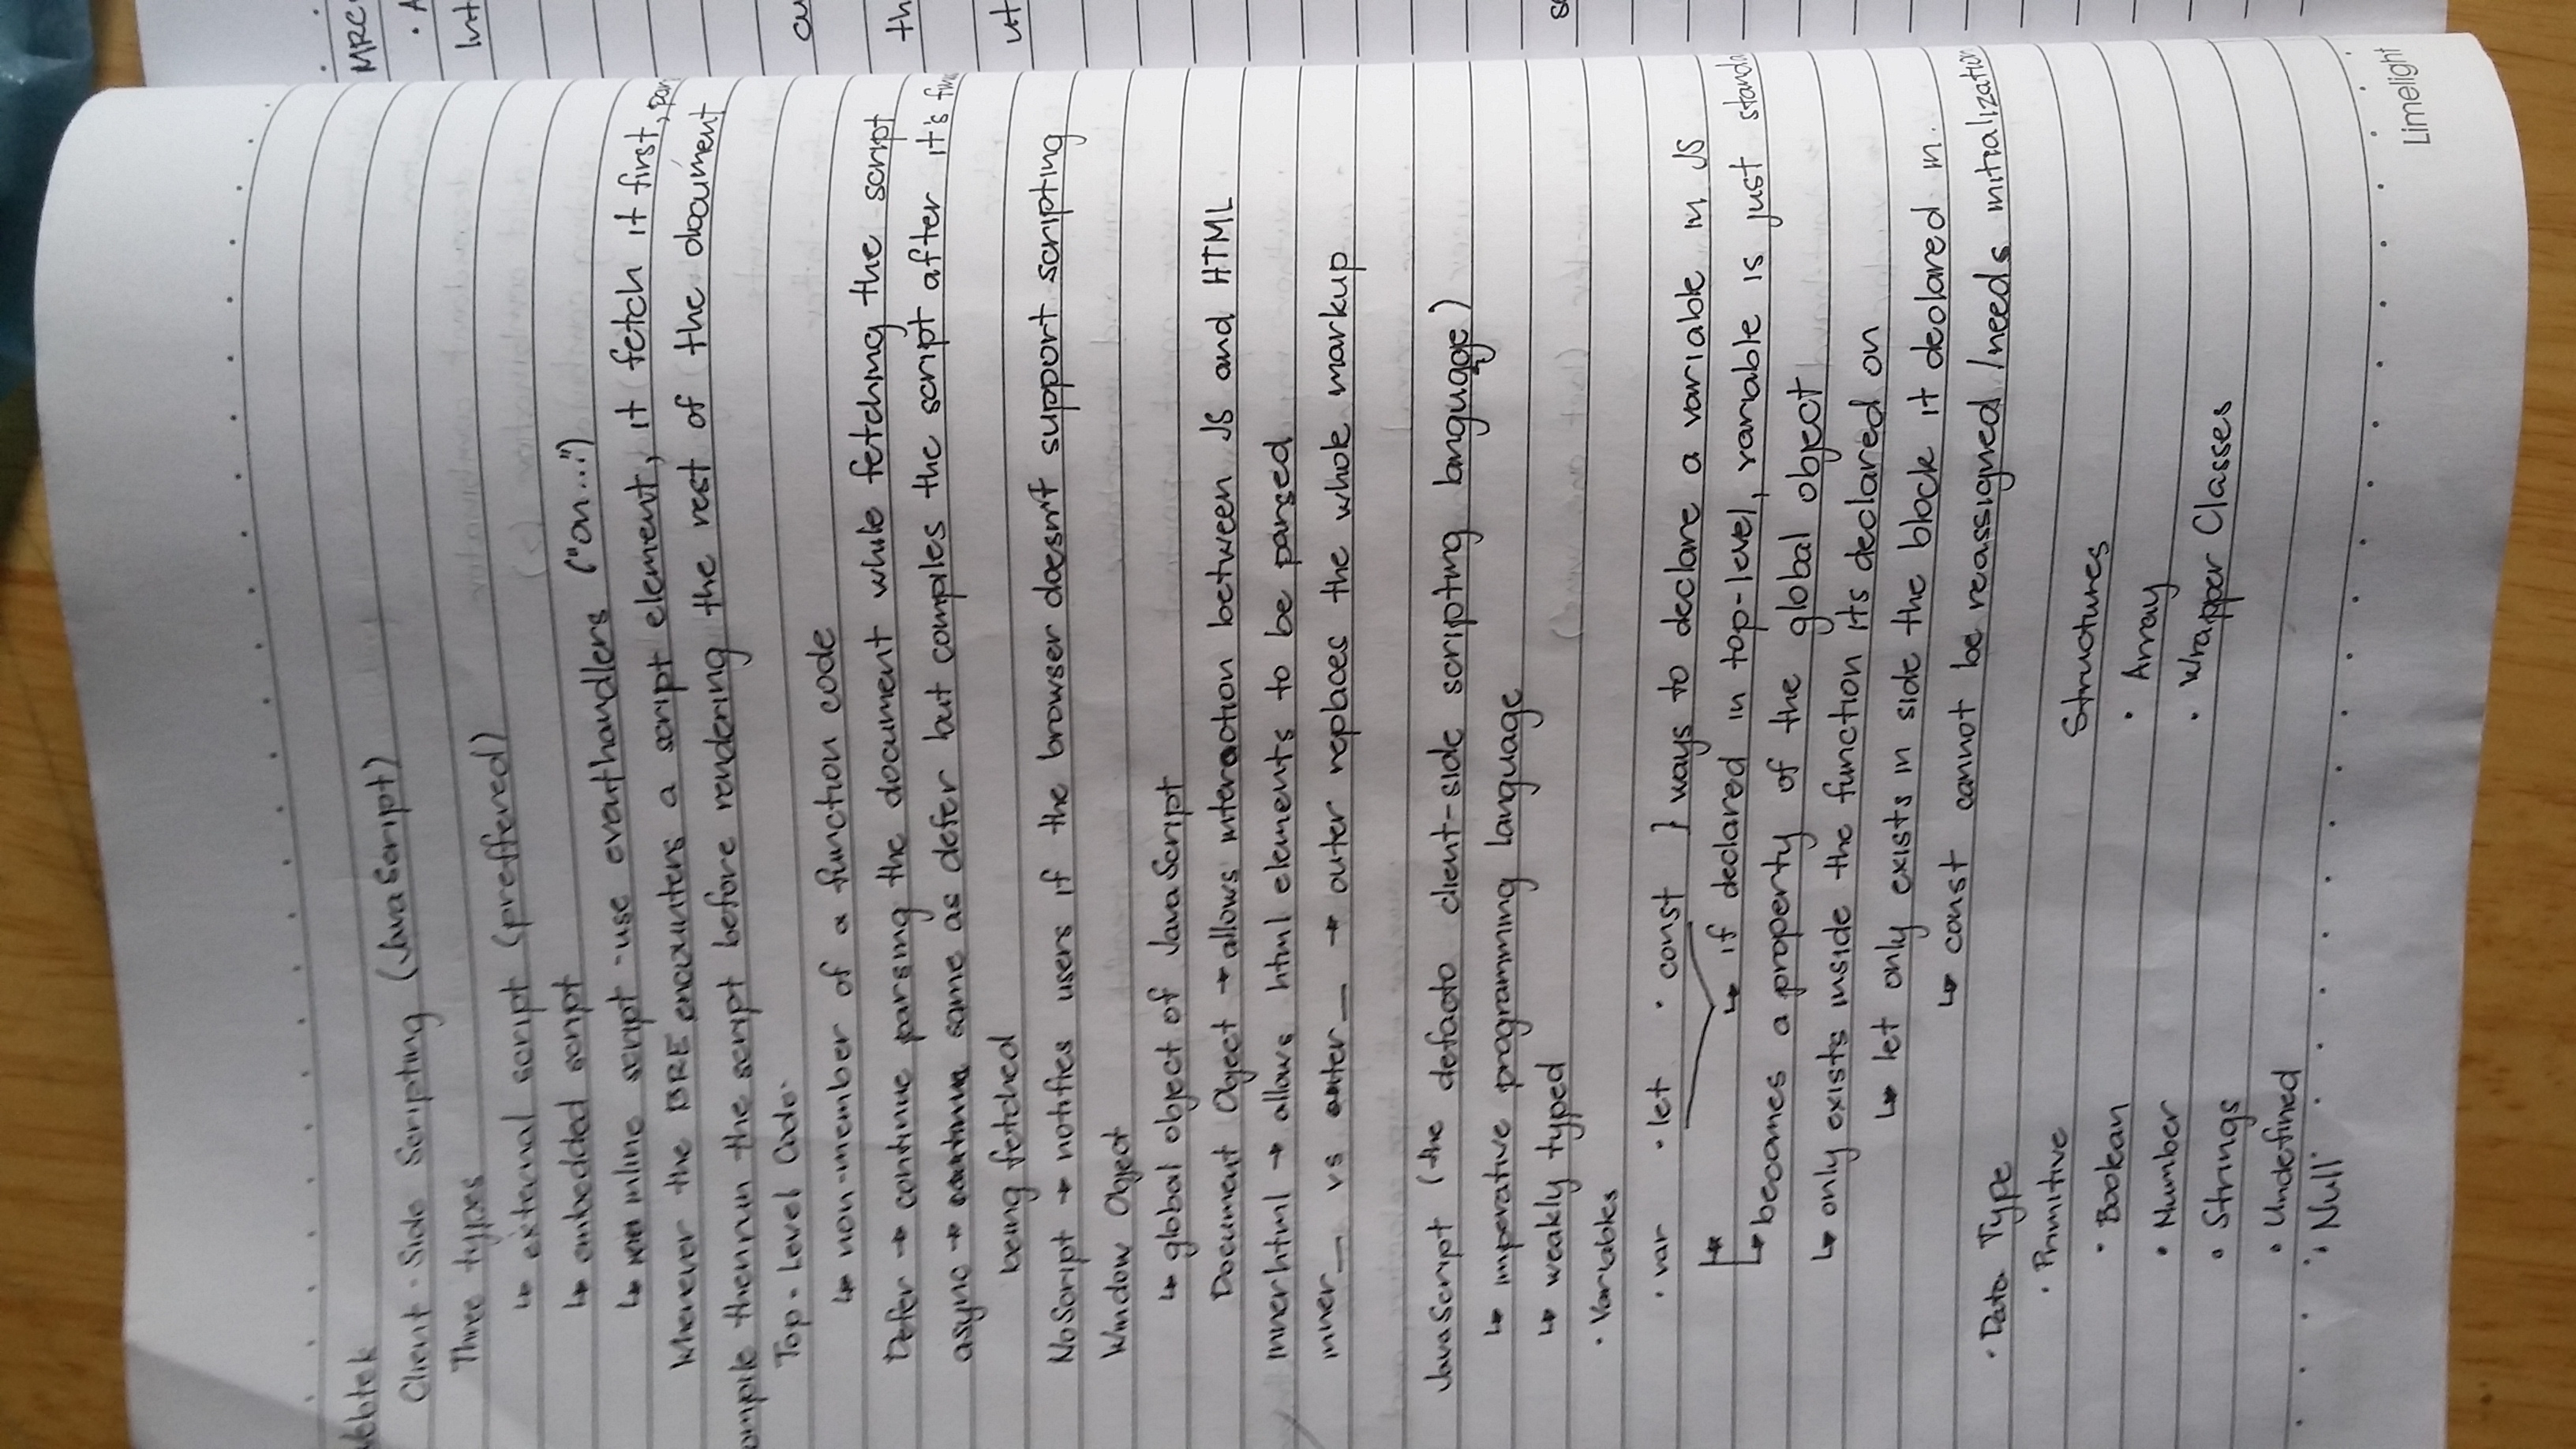 Webtek
Client-Side Scripting (JavaScript)
Three types
↳ external script (preffered)
↳ embedded script
↳ inline script - use eventhandlers ("on...")
Whenever the BRE encounters a script element, it fetch it first, par
ompile then run the script before rendering the rest of the document
Top-Level Code
↳ non-member of a function code
Defer → continue parsing the document while fetching the script
async → same as defer but compiles the script after it's
being fetched
NoScript → notifies users if the browser doesn't support scripting
Window Object
↳ global object of JavaScript
Document Object → allows interaction between JS and HTML
innerhtml → allows html elements to be parsed
inner_ vs outer_ → outer replaces the whole markup
JavaScript (the defacto client-side scripting language)
↳ imperative programming language
↳ weakly typed
• Variables
• var • let • const } ways to declare a variable in JS
↳ if declared in top-level, variable is just standa
↳ becomes a property of the global object
↳ only exists inside the function its declared on
↳ let only exists in side the block it declared in.
↳ const cannot be reassigned / needs initialization
• Data Type
• Primitive
• Boolean
• Number
• Strings
• Undefined
• Null
Structures
• Array
• Wrapper Classes
Limelight
MRC
• A
Int
cu
th
ut